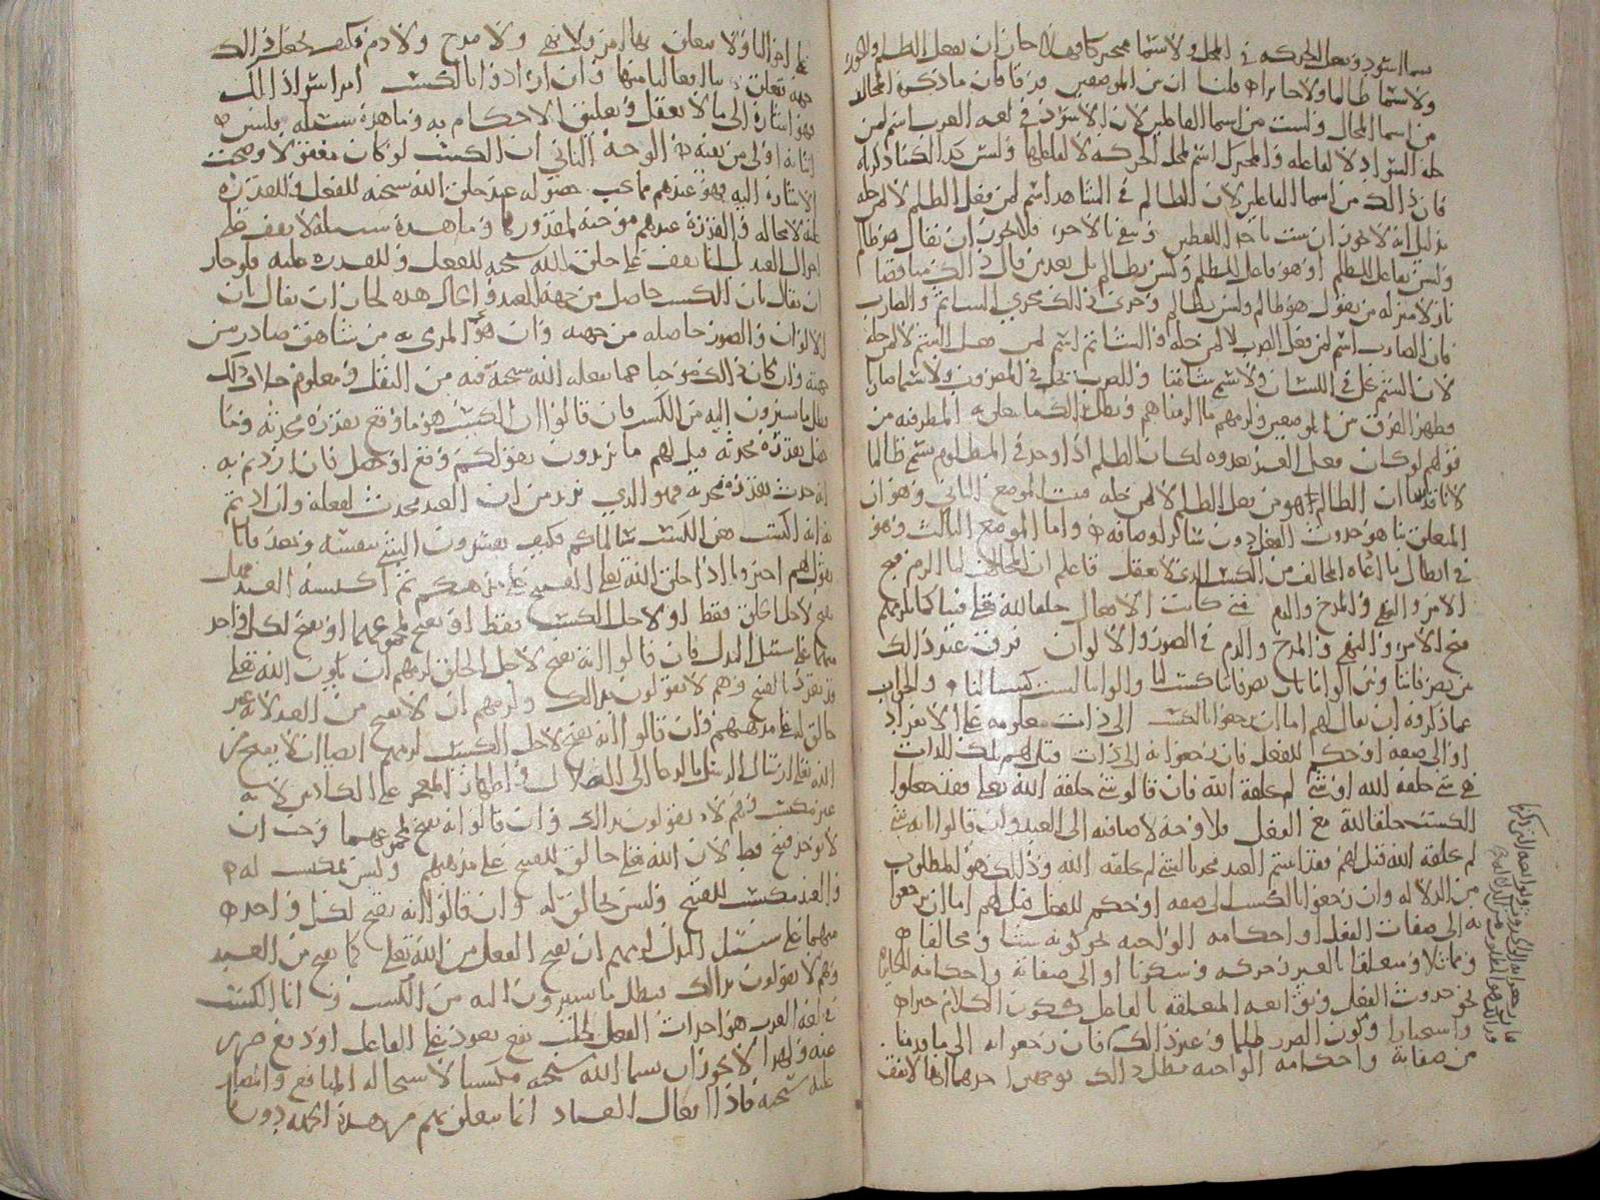 سما اسود وبفعل الحركه في المحل ولا سما متحركا فهلا جاز ان يفعل الظلم والجور
ولا سما ظالما ولا جايرا قلنا ان بين الموضعين فرقا فان ما ذكره المخالف
من اسما المحال وليست من اسما الفاعلين لان الاسود في لغه العرب اسم لمن
حله السواد لا لفاعله والمتحرك اسم لمحل الحركه لا لفاعلها وليس كذالك
فان ذالك من اسما الفاعلين لان الظالم في الشاهد اسم لمن فعل الظلم لا لمن حله
بدليل انه لا يجوز ان يثبت باحد اللفظين وينفى بالاخر فلا يجوز ان يقال هو ظالم
وليس بفاعل للظلم او هو فاعل للظلم وليس بظالم بل يعد من قال ذالك مناقضا
نازلا منزله من يقول هو ظالم وليس بظالم وجرى ذالك مجرى الشاتم والضارب
فان الضارب اسم لمن فعل الضرب لا لمن حله والشاتم اسم لمن فعل الشتم لا لمن حله
لان الشتم يحل في اللسان ولا يسمى شاتما والضرب يحل في المضروب ولا يسما ضاربا
فظهر الفرق بين الموضعين ولزمهم ما الزمناهم وبطل ذالك ما تعلق به المطرفيه من
قولهم لو كان فعل العبد يعدوه لكان الظلم اذا وجد في المظلوم سمي ظالما
لانا قد بينا ان الظالم هو من فعل الظلم لا لمن حله فثبت الموضع الثاني وهو ان
المتعلق بنا هو حدوث الفعل دون سائر اوصافه واما الموضع الثالث وهو
في ابطال ما ادعاه المخالف من الكسب الذي لا يعقل فاعلم ان المخالف لما الزم قبح
الامر والنهي والمدح والذم متى كانت الافعال خلقا لله تعلى فينا كما يلزمهم
قبح الامر والنهي والمدح والذم في الصور والالوان فرقت عند ذالك
بين تصرفاتنا وبين الواننا بان تصرفاتنا كسب لنا والواننا ليست كسبا لنا والجواب
عما ذكروه ان يقال لهم اما ان يرجعوا بالكسب الى ذات معلومه على الانفراد
او الى صفه او حكم للفعل فان رجعوا به الى ذات قيل لهم تلك الذات
هي شي خلقه الله او شي لم يخلقه الله فان قالو شي خلقه الله تعلى فقد جعلوا
الكسب خلقا لله مع الفعل فلا وجه لاضافته الى العبد وان قالوا انه شي
لم يخلقه الله قيل لهم فقد اثبتم العبد محدثا لشي لم يخلقه الله وذلك هو المطلوب
من الدلاله وان رجعوا بالكسب الى صفه او حكم للفعل قيل لهم اما ان يرجعوا
به الى صفات الفعل او احكامه الواجبه نحو كونه شيئا ومخالفا
ومماثلا ومتعلقا بالغير وحركه وسكونا او الى صفاته واحكامه الجايزه
نحو حدوث الفعل وتوابعه المتعلقه بالفاعل ككون الكلام خبرا
واستخبارا وكون الضرر ظلما وغير ذالك فان رجعوا به الى ما قدمنا
من صفاته واحكامه الواجبه بطل ذالك بوجهين احدهما انها لا تقف
على احوالنا ولا يتعلق بها امر ولا نهي ولا مدح ولا ذم فكيف يجعل ذالك
جهه تعلق افعالنا منها وان ارادوا بالكسب امرا سوا ذالك
فهو اشاره الى ما لا يعقل وتعليق الاحكام به وما هذه سبيله فليس
اثباته اولى من نفيه الوجه الثاني ان الكسب لو كان معقولا وصحت
الاشاره اليه فهو عندهم مما يجب حصوله عند خلق الله سبحنه للفعل وللقدره
عليه لا محاله والقدره عندهم موجبه لمقدورها وما هذه سبيله لا يقف على
احوال العبد بل انما يقف على خلق الله سبحنه للفعل وللقدره عليه فلو جاز
ان يقال بان الكسب حاصل من جهه العبد والحال هذه لجاز ان يقال ان
الالوان والصور حاصله من جهته وان هوي المرمى به من شاهق صادر من
جهته وان كان ذالك موجبا عما يفعله الله سبحنه فيه من الثقل ومعلوم خلاف ذلك
بطل ما يشيرون اليه من الكسب فان قالوا ان الكسب هو ما وقع بقدره محدثه وما
حصل بقدره محدثه قيل لهم ما تريدون بقولكم وقع او حصل فان اردتم به
انه حدث بقدره محدثه فهو الذي نريد من ان العبد محدث لفعله وان اردتم
به انه اكتسب هي الكسب سالناكم فكيف تفسرون الشي بنفسه وبعد فانا
نقول لهم اخبرونا اذا خلق الله تعلى القبيح على مذهبكم ثم اكتسبه العبد هل
يقبح لاجل الخلق فقط او لاجل الكسب فقط او يقبح لمجموعهما او يقبح لكل واحد
منهما على سبيل البدل فان قالوا انه يقبح لاجل الخلق لزمهم ان يكون الله تعلى
قد تفرد بالقبح وهم لا يقولون بذالك ولزمهم ان لا يقبح من العبد لانه غير
خالق له على مذهبهم وان قالوا انه يقبح لاجل الكسب لزمهم ايضا ان لا يقبح من
الله تعلى ارسال الرسل بالدعا الى الضلال واظهار المعجز على الكاذبين لانه
غير مكتسب وهم لا يقولون بذالك وان قالوا انه يقبح لمجموعهما وجب ان
لا يوجد قبيح قط لان الله تعلى خالق للقبيح على مذهبهم وليس بمكتسب له
والعبد مكتسب للقبيح وليس بخالق له وان قالوا انه يقبح لكل واحد
منهما على سبيل البدل لزمهم ان يقبح الفعل من الله تعلى كما يقبح من العبد
وهم لا يقولون بذالك فبطل ما يشيرون اليه من الكسب وانما الكسب
في لغه العرب هو احداث الفعل لجلب نفع يعود على الفاعل او دفع ضرر
عنه ولهذا لا يجوز ان يسما الله سبحنه مكتسبا لاستحاله المنافع والمضار
عليه سبحنه فاذا افعال العباد انما يتعلق بهم من هذه الجهه دون